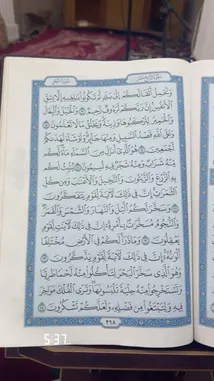 وَتَحْمِلُ أَثْقَالَكُمْ إِلَىٰ بَلَدٍ لَّمْ تَكُونُوا۟ بَٰلِغِيهِ إِلَّا بِشِقِّ
ٱلْأَنفُسِ إِنَّ رَبَّكُمْ لَرَءُوفٌ رَّحِيمٌ ٧ وَٱلْخَيْلَ وَٱلْبِغَالَ
وَٱلْحَمِيرَ لِتَرْكَبُوهَا وَزِينَةً وَيَخْلُقُ مَا لَا تَعْلَمُونَ ٨
وَعَلَى ٱللَّهِ قَصْدُ ٱلسَّبِيلِ وَمِنْهَا جَآئِرٌ وَلَوْ شَآءَ لَهَدَىٰكُمْ
أَجْمَعِينَ ٩ هُوَ ٱلَّذِىٓ أَنزَلَ مِنَ ٱلسَّمَآءِ مَآءً لَّكُم
مِّنْهُ شَرَابٌ وَمِنْهُ شَجَرٌ فِيهِ تُسِيمُونَ ١٠ يُنۢبِتُ لَكُم
بِهِ ٱلزَّرْعَ وَٱلزَّيْتُونَ وَٱلنَّخِيلَ وَٱلْأَعْنَٰبَ وَمِن كُلِّ
ٱلثَّمَرَٰتِ إِنَّ فِى ذَٰلِكَ لَءَايَةً لِّقَوْمٍ يَتَفَكَّرُونَ ١١
وَسَخَّرَ لَكُمُ ٱلَّيْلَ وَٱلنَّهَارَ وَٱلشَّمْسَ وَٱلْقَمَرَ
وَٱلنُّجُومُ مُسَخَّرَٰتٌۢ بِأَمْرِهِۦٓ إِنَّ فِى ذَٰلِكَ لَءَايَٰتٍ لِّقَوْمٍ
يَعْقِلُونَ ١٢ وَمَا ذَرَأَ لَكُمْ فِى ٱلْأَرْضِ مُخْتَلِفًا
أَلْوَٰنُهُۥٓ إِنَّ فِى ذَٰلِكَ لَءَايَةً لِّقَوْمٍ يَذَّكَّرُونَ ١٣
وَهُوَ ٱلَّذِى سَخَّرَ ٱلْبَحْرَ لِتَأْكُلُوا۟ مِنْهُ لَحْمًا طَرِيًّا
وَتَسْتَخْرِجُوا۟ مِنْهُ حِلْيَةً تَلْبَسُونَهَا وَتَرَى ٱلْفُلْكَ مَوَاخِرَ
فِيهِ وَلِتَبْتَغُوا۟ مِن فَضْلِهِۦ وَلَعَلَّكُمْ تَشْكُرُونَ ١٤
٢٦٨
5:37